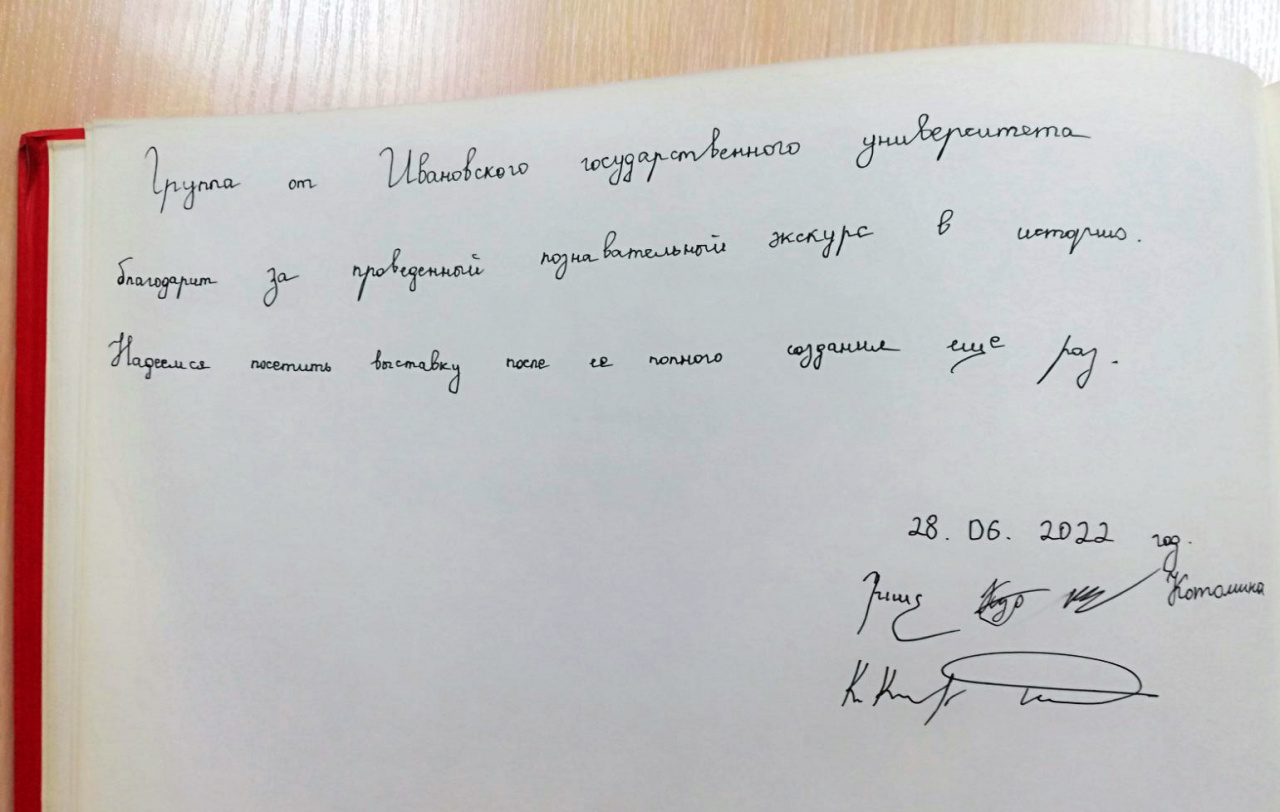 Группа от Ивановского государственного университета
благодарит за проведенный познавательный экскурс в историю.
Надеемся посетить выставку после ее полного создания еще раз.
28. 06. 2022 год.